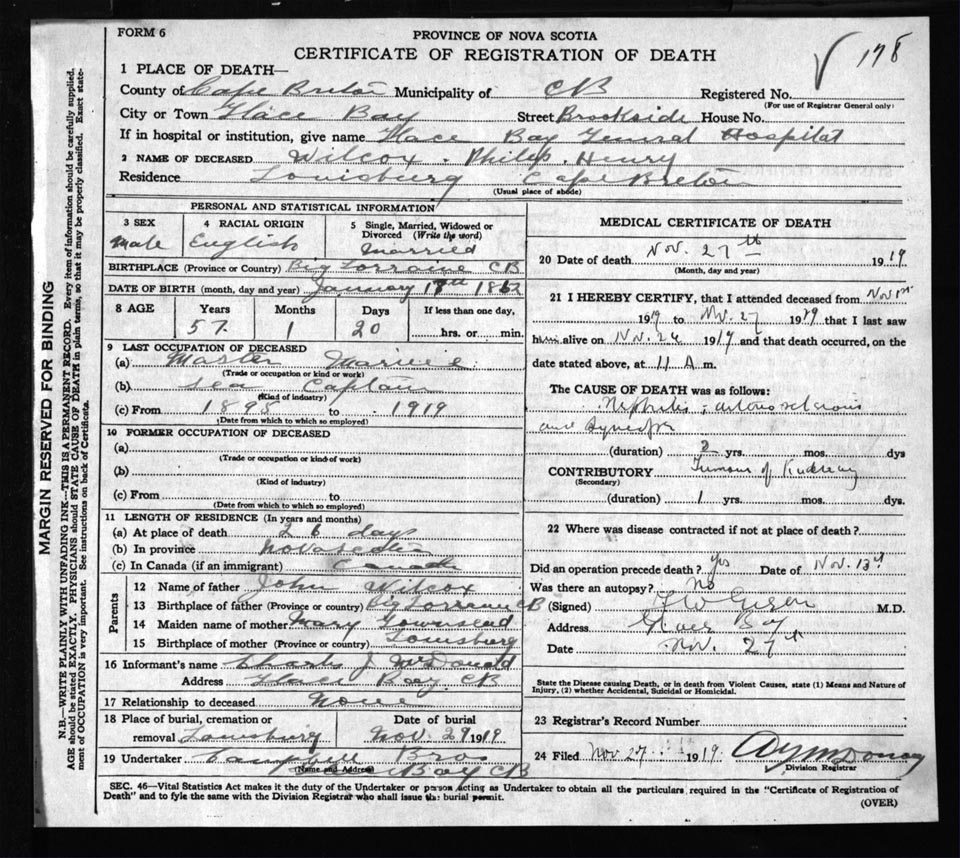 FORM 6
PROVINCE OF NOVA SCOTIA
CERTIFICATE OF REGISTRATION OF DEATH
178
1 PLACE OF DEATH—
County of Cape Breton Municipality of CB Registered No.
(For use of Registrar General only)
City or Town Glace Bay Street Brookside House No.
If in hospital or institution, give name Glace Bay General Hospital
2 NAME OF DECEASED Wilcox. Philip. Henry
Residence Louisburg Cape Breton
(Usual place of abode)
PERSONAL AND STATISTICAL INFORMATION
3 SEX 4 RACIAL ORIGIN 5 Single, Married, Widowed or
Divorced (Write the word)
Male English Married
BIRTHPLACE (Province or Country) Big Lorraine CB
DATE OF BIRTH (month, day and year) January 1862
8 AGE Years Months Days If less than one day,
57 1 20 hrs. or min.
9 LAST OCCUPATION OF DECEASED
(a) Master
(Trade or occupation or kind or work)
(b) Sea Captain
(Kind of industry)
(c) From 1898 to 1919
(Date from which to which so employed)
10 FORMER OCCUPATION OF DECEASED
(a)
(Trade or occupation or kind of work)
(b)
(Kind of industry)
(c) From to
(Date from which to which so employed)
11 LENGTH OF RESIDENCE (In years and months)
(a) At place of death 26 days
(b) In province Nova Scotia
(c) In Canada (if an immigrant) Canada
Parents
12 Name of father John Wilcox
13 Birthplace of father (Province or country) Big Lorraine CB
14 Maiden name of mother Mary Townsend
15 Birthplace of mother (Province or country) Louisburg
16 Informant's name Charles J McDonald
Address Glace Bay. CB
17 Relationship to deceased None
18 Place of burial, cremation or Date of burial
removal Louisburg Nov 29 1919
19 Undertaker Bros
(Name and Address) Bay CB
MEDICAL CERTIFICATE OF DEATH
20 Date of death Nov. 27th 1919
(Month, day and year)
21 I HEREBY CERTIFY, that I attended deceased from Nov 1st
1919 to Nov. 27 1919 that I last saw
him alive on Nov. 26 1919 and that death occurred, on the
date stated above, at 11 A m.
The CAUSE OF DEATH was as follows:
Nephritis; arterio sclerosis
and
(duration) 2 yrs. mos. dys
CONTRIBUTORY Tumour of
(Secondary)
(duration) 1 yrs. mos. dys.
22 Where was disease contracted if not at place of death?
Did an operation precede death? Yes Date of Nov. 13th
Was there an autopsy? No
(Signed) M.D.
Address Glace Bay
Date Nov. 27th
State the Disease causing Death, or in death from Violent Causes, state (1) Means and Nature of
Injury, (2) whether Accidental, Suicidal or Homicidal.
23 Registrar's Record Number
24 Filed Nov 27 1919.
Division Registrar
SEC. 46—Vital Statistics Act makes it the duty of the Undertaker or person acting as Undertaker to obtain all the particulars required in the "Certificate of Registration of
Death" and to fyle the same with the Division Registrar who shall issue the burial permit.
(OVER)
MARGIN RESERVED FOR BINDING
N.B.—WRITE PLAINLY WITH UNFADING INK—THIS IS A PERMANENT RECORD. Every item of information should be carefully supplied.
AGE should be stated EXACTLY. PHYSICIANS should STATE CAUSE OF DEATH in plain terms, so that it may be properly classified. Exact state-
ment of OCCUPATION is very important. See instructions on back of Certificate.